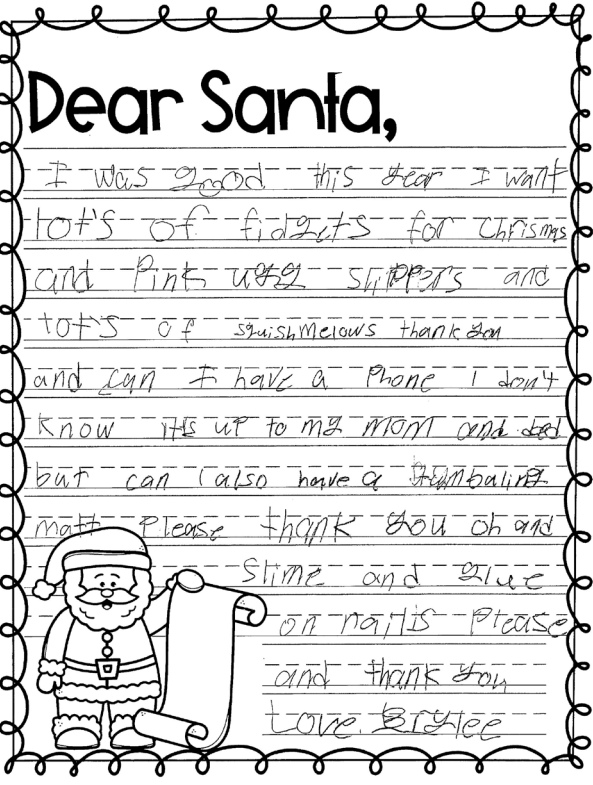 Dear Santa,
I was good this year I want
lot's of fidgets for Chrismas
and Pink ugg slippers and
lot's of squishmelows thank you
and can I have a Phone I don't
know it's up to my mom and dad
but can I also have a tumbaling
matt Please thank you oh and
Slime and glue
on nails Please
and thank you
Love Brylee